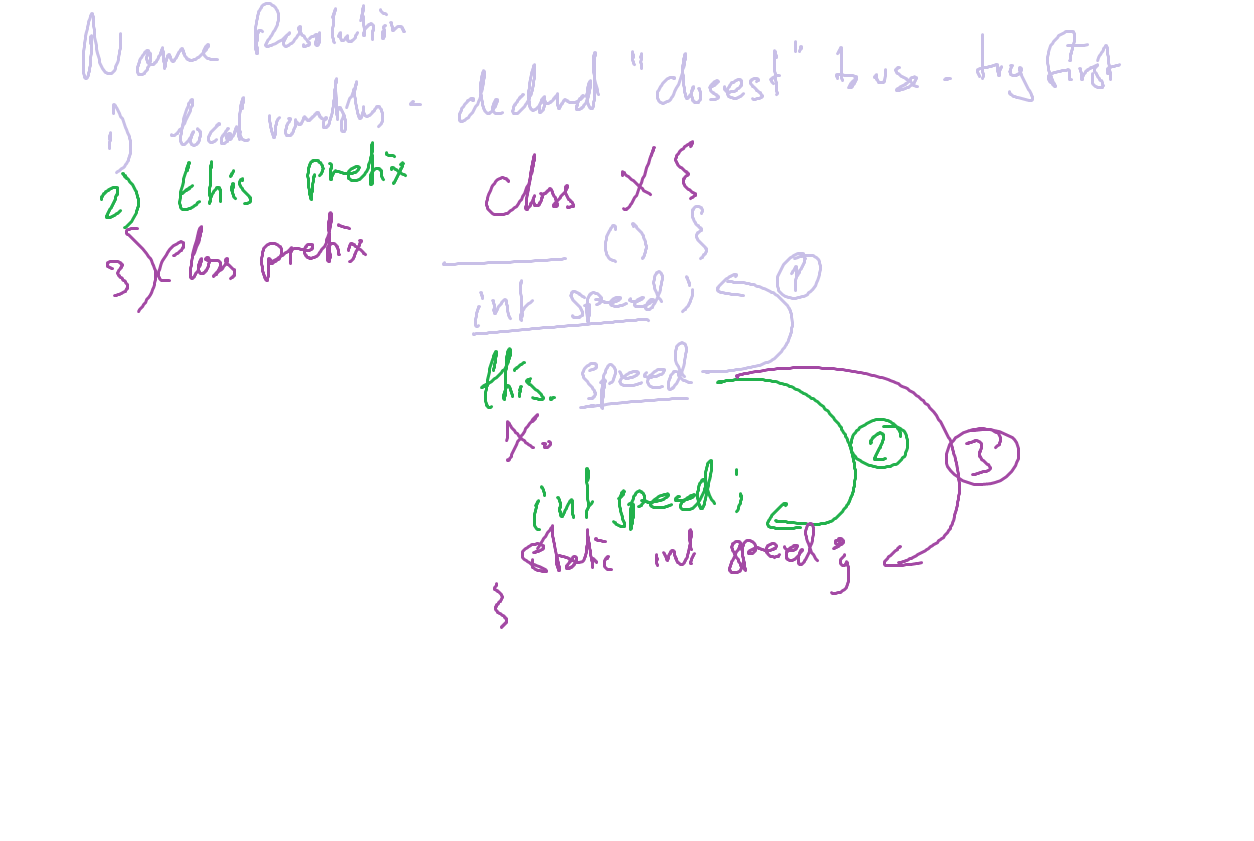 Name Resolution
1) local variables - declared "closest" to use - try first
2) this prefix
3) Class prefix
Class X {
() {
int speed ; 1
this. speed
X. 2 3
int speed ;
static int speed ;
}